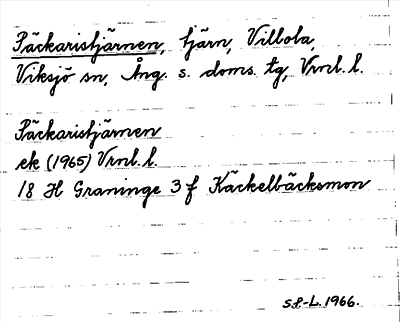 Päckaristjärnen, tjärn, Villola,
Viksjö sn, Ång. s. doms. tg, Vrnl. l.
Päckaristjärnen
ek (1965) Vrnl. l.
18 H Graninge 3 f Käckelbäcksmon
S.L. 1966.